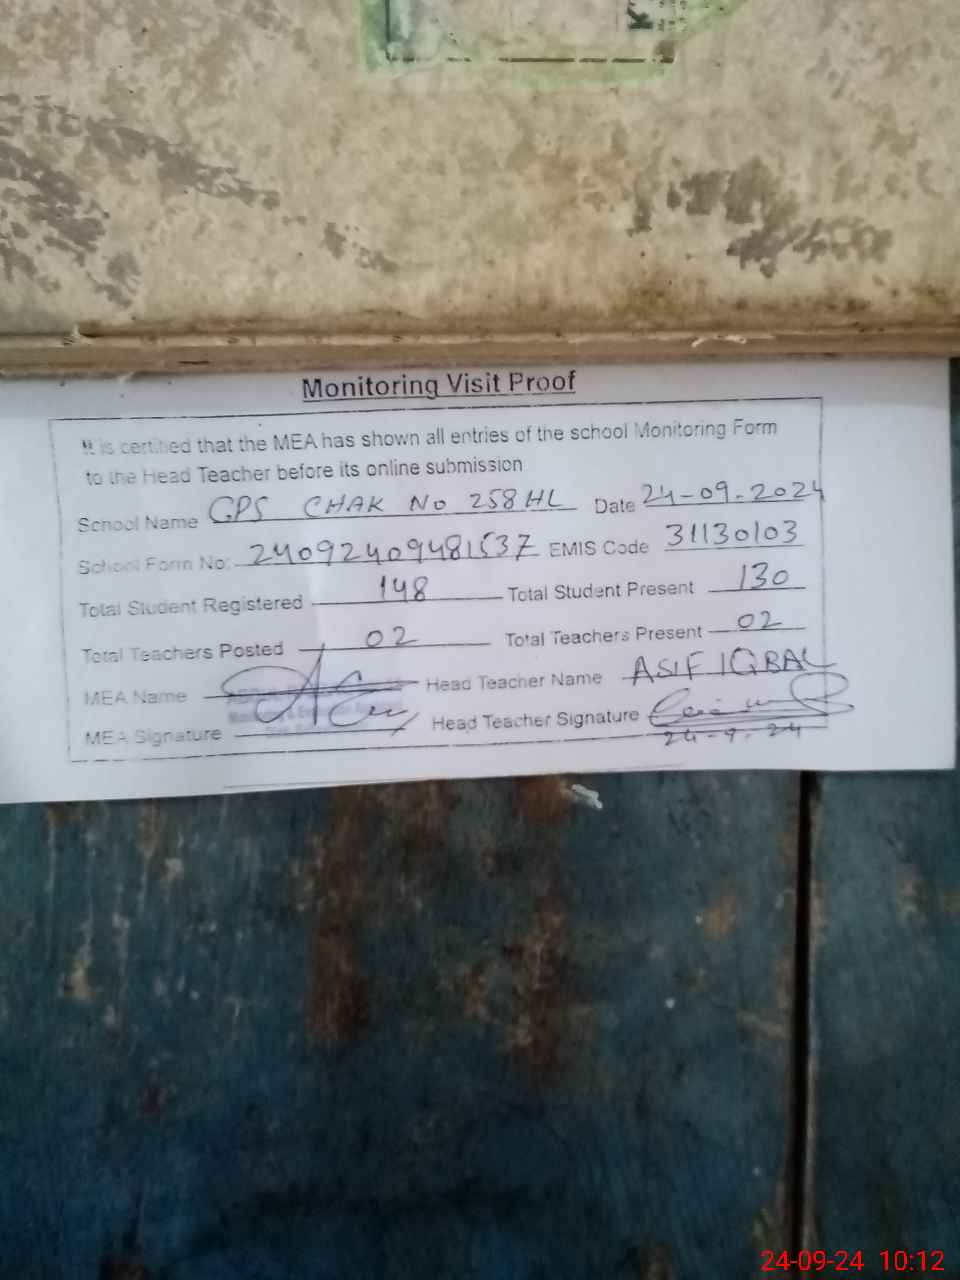 K
Monitoring Visit Proof
It is certified that the MEA has shown all entries of the school Monitoring Form
to the Head Teacher before its online submission
School Name GPS CHAK No 258 HL Date 24-09-2024
School Form No: 24092409481537 EMIS Code 31130103
Total Student Registered 148 Total Student Present 130
Total Teachers Posted 02 Total Teachers Present 02
MEA Name Head Teacher Name ASIF IQBAL
MEA Signature Head Teacher Signature
24-9-24
24-09-24 10:12